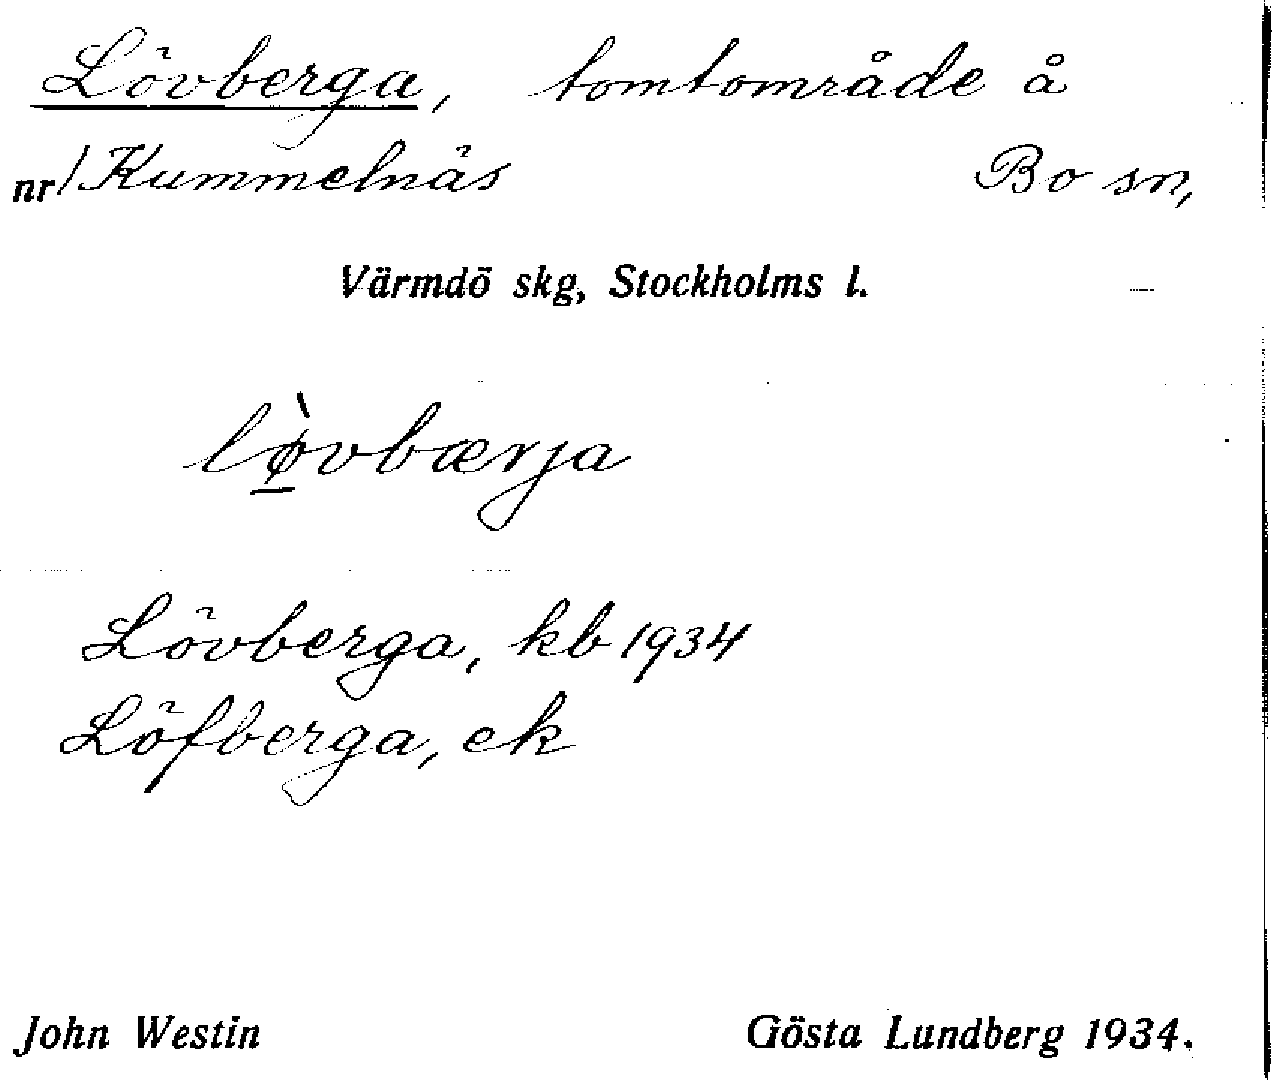 Lövberga, tomtområde å
nr/Kummelnäs Bo sn,
Värmdö skg, Stockholms l.
lø̱̀vbærja
Lövberga, kb 1934
Löfberga, ek
John Westin Gösta Lundberg 1934.